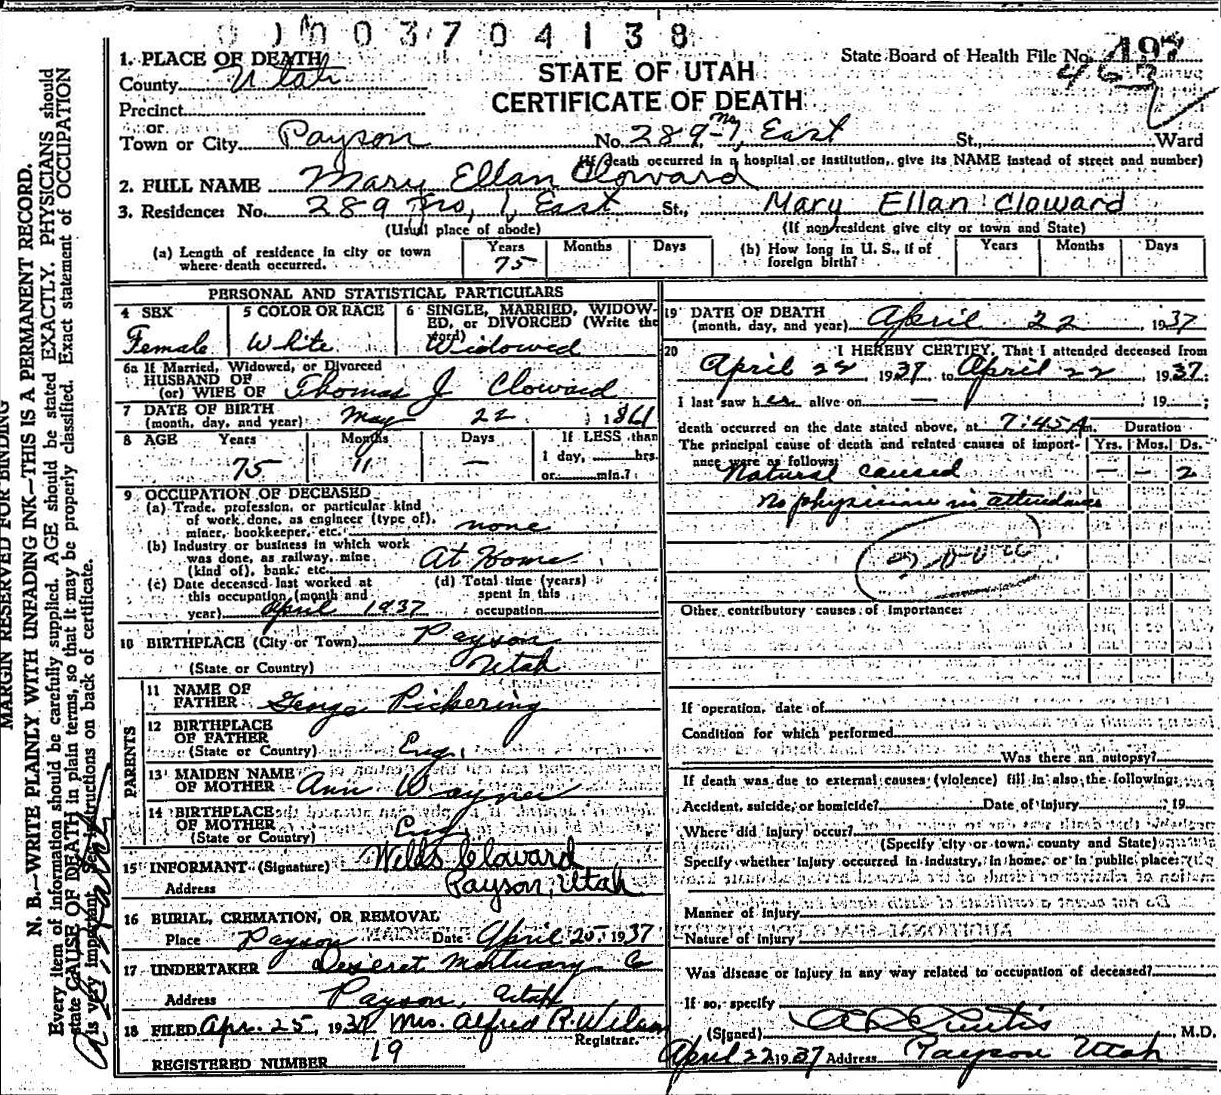 003704138
1. PLACE OF DEATH
County Utah
State Board of Health File No. 197
463
STATE OF UTAH
CERTIFICATE OF DEATH
Precinct
or
Town or City Payson No. 289 No 1, East St., Ward
(If death occurred in a hospital or institution, give its NAME instead of street and number)
2. FULL NAME Mary Ellan Cloward
3. Residence: No. 289 No, 1, East St., Mary Ellan Cloward
(Usual place of abode) (If nonresident give city or town and State)
(a) Length of residence in city or town where death occurred. Years 75 Months Days
(b) How long in U. S., if of foreign birth? Years Months Days
PERSONAL AND STATISTICAL PARTICULARS
4 SEX Female
5 COLOR OR RACE White
6 SINGLE, MARRIED, WIDOWED, or DIVORCED (Write the word) Widowed
6a If Married, Widowed, or Divorced
HUSBAND OF
(or) WIFE OF Thomas J Cloward
7 DATE OF BIRTH
(month, day, and year) May 22 1861
8 AGE Years 75 Months 11 Days — If LESS than
1 day, hrs.
or min.?
9 OCCUPATION OF DECEASED
(a) Trade, profession, or particular kind
of work done, as engineer (type of),
miner, bookkeeper, etc. none
(b) Industry or business in which work
was done, as railway, mine
(kind of), bank, etc. At Home
(c) Date deceased last worked at
this occupation (month and
year) April 1937
(d) Total time (years)
spent in this
occupation
10 BIRTHPLACE (City or Town) Payson
(State or Country) Utah
PARENTS
11 NAME OF
FATHER George Pickering
12 BIRTHPLACE
OF FATHER
(State or Country) Eng.
13 MAIDEN NAME
OF MOTHER Ann
14 BIRTHPLACE
OF MOTHER
(State or Country) Eng
15 INFORMANT (Signature) Wells Cloward
Address Payson, Utah
16 BURIAL, CREMATION, OR REMOVAL
Place Payson Date April 25, 1937
17 UNDERTAKER Deseret Mortuary Co
Address Payson, Utah
18 FILED Apr. 25, 1937 Mrs. Alfred R. Wilson
Registrar.
REGISTERED NUMBER 19
19 DATE OF DEATH
(month, day, and year) April 22, 1937
20 I HEREBY CERTIFY, That I attended deceased from
April 22 1937 to April 22, 1937.
I last saw her alive on —, 19 ;
death occurred on the date stated above, at 7:45 A m. Duration
The principal cause of death and related causes of importance were as follows: Yrs. Mos. Ds.
Natural caused — — 2
No physician in attendance
Other contributory causes of importance:
If operation, date of
Condition for which performed
Was there an autopsy?
If death was due to external causes (violence) fill in also the following:
Accident, suicide, or homicide? Date of injury, 19
Where did injury occur?
(Specify city or town, county and State)
Specify whether injury occurred in industry, in home, or in public place:
Manner of Injury
Nature of Injury
Was disease or injury in any way related to occupation of deceased?
If so, specify
(Signed) Curtis M.D.
April 22 1937 Address Payson Utah
MARGIN RESERVED FOR BINDING
N. B.—WRITE PLAINLY WITH UNFADING INK—THIS IS A PERMANENT RECORD.
Every item of information should be carefully supplied. AGE should be stated EXACTLY. PHYSICIANS should
state CAUSE OF DEATH in plain terms, so that it may be properly classified. Exact statement of OCCUPATION
is very important. See instructions on back of certificate.